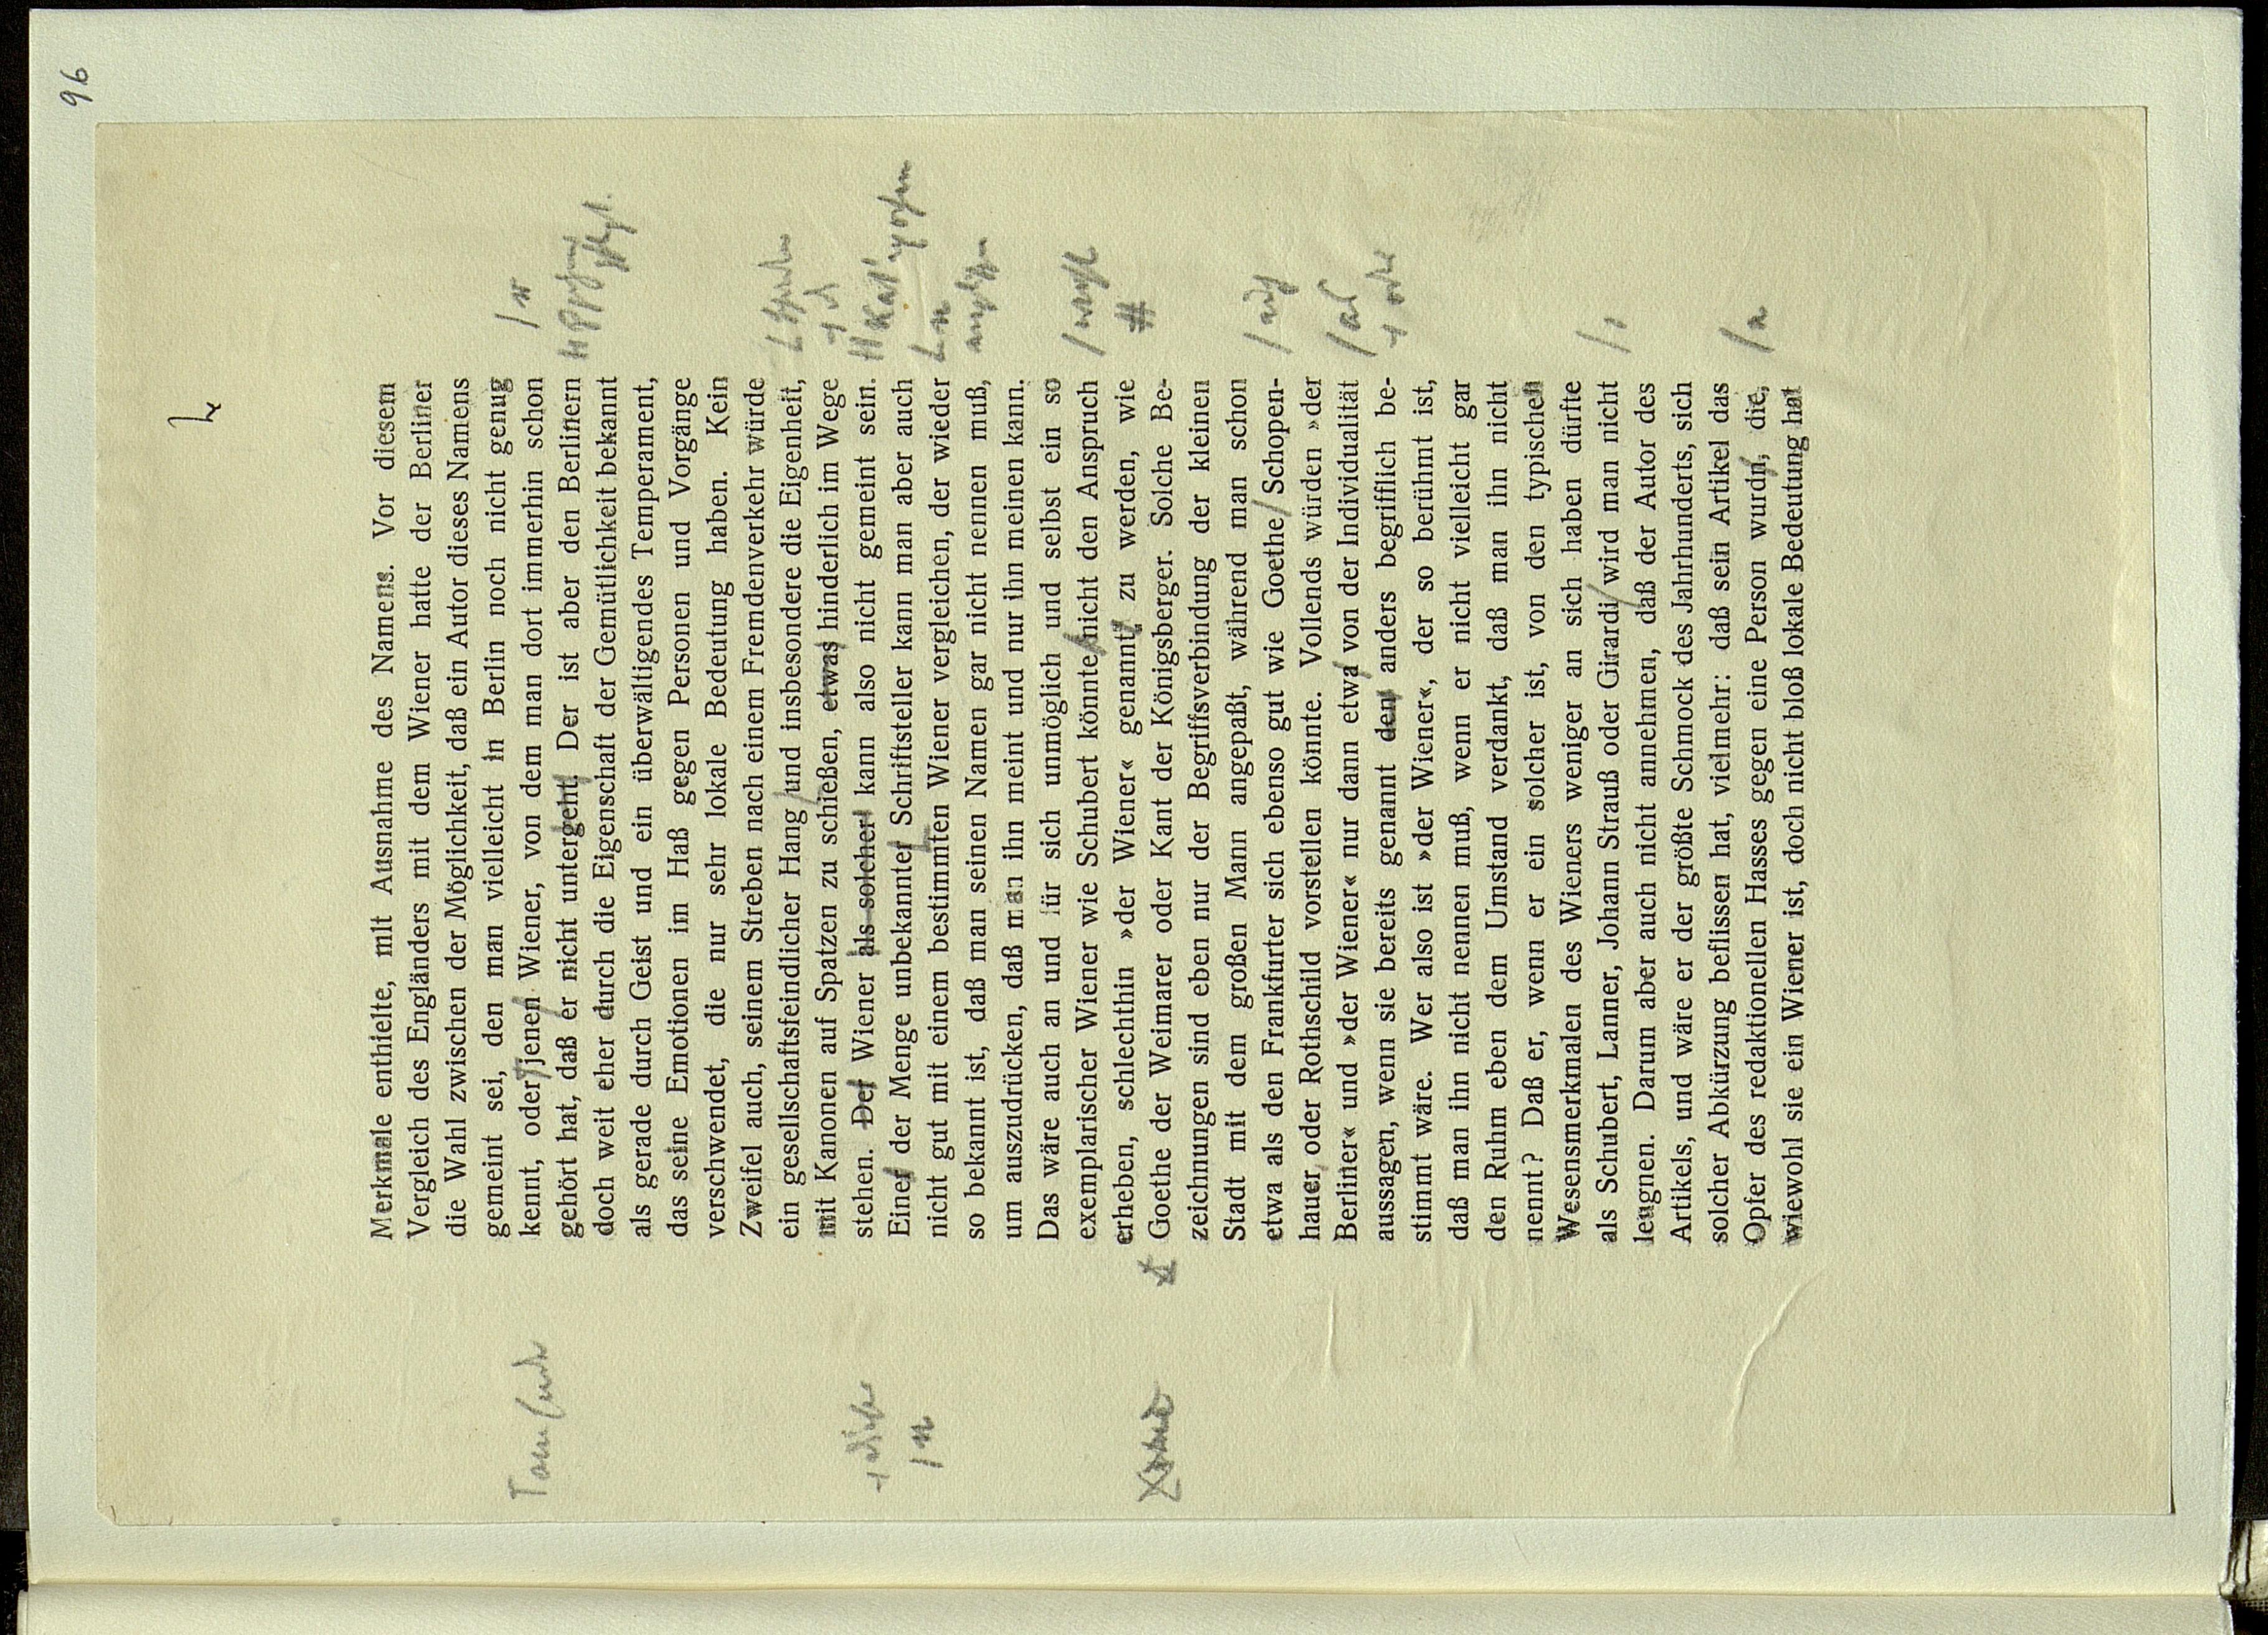 96
Merkmale enthielte, mit Ausnahme des Namens. Vor diesem
Vergleich des Engländers mit dem Wiener hatte der Berliner
die Wahl zwischen der Möglichkeit, daß ein Autor dieses Namens
gemeint sei, den man vielleicht in Berlin noch nicht genug
kennt, oder jenen Wiener, von dem man dort immerhin schon
gehört hat, daß er nicht untergeht. Der ist aber den Berlinern
doch weit eher durch die Eigenschaft der Gemütlichkeit bekannt
als gerade durch Geist und ein überwältigendes Temperament,
das seine Emotionen im Haß gegen Personen und Vorgänge
verschwendet, die nur sehr lokale Bedeutung haben. Kein
Zweifel auch, seinem Streben nach einem Fremdenverkehr würde
ein gesellschaftsfeindlicher Hang und insbesondere die Eigenheit,
mit Kanonen auf Spatzen zu schießen, etwas hinderlich im Wege
stehen. Der Wiener als solcher kann also nicht gemeint sein.
Einer der Menge unbekannter Schriftsteller kann man aber auch
nicht gut mit einem bestimmten Wiener vergleichen, der wieder
so bekannt ist, daß man seinen Namen gar nicht nennen muß,
um auszudrücken, daß man ihn meint und nur ihn meinen kann.
Das wäre auch an und für sich unmöglich und selbst ein so
exemplarischer Wiener wie Schubert könnte nicht den Anspruch
erheben, schlechthin »der Wiener« genannt zu werden, wie
Goethe der Weimarer oder Kant der Königsberger. Solche Be-
zeichnungen sind eben nur der Begriffsverbindung der kleinen
Stadt mit dem großen Mann angepaßt, während man schon
etwa als den Frankfurter sich ebenso gut wie Goethe Schopen-
hauer oder Rothschild vorstellen könnte. Vollends würden »der
Berliner« und »der Wiener« nur dann etwa von der Individualität
aussagen, wenn sie bereits genannt den anders begrifflich be-
stimmt wäre. Wer also ist »der Wiener«, der so berühmt ist,
daß man ihn nicht nennen muß, wenn er nicht vielleicht gar
den Ruhm eben dem Umstand verdankt, daß man ihn nicht
nennt? Daß er, wenn er ein solcher ist, von den typischen
Wesensmerkmalen des Wieners weniger an sich haben dürfte
als Schubert, Lanner, Johann Strauß oder Girardi wird man nicht
leugnen. Darum aber auch nicht annehmen, daß der Autor des
Artikels, und wäre er der größte Schmock des Jahrhunderts, sich
solcher Abkürzung beflissen hat, vielmehr: daß sein Artikel das
Opfer des redaktionellen Hasses gegen eine Person wurdn, die,
wiewohl sie ein Wiener ist, doch nicht bloß lokale Bedeutung hat